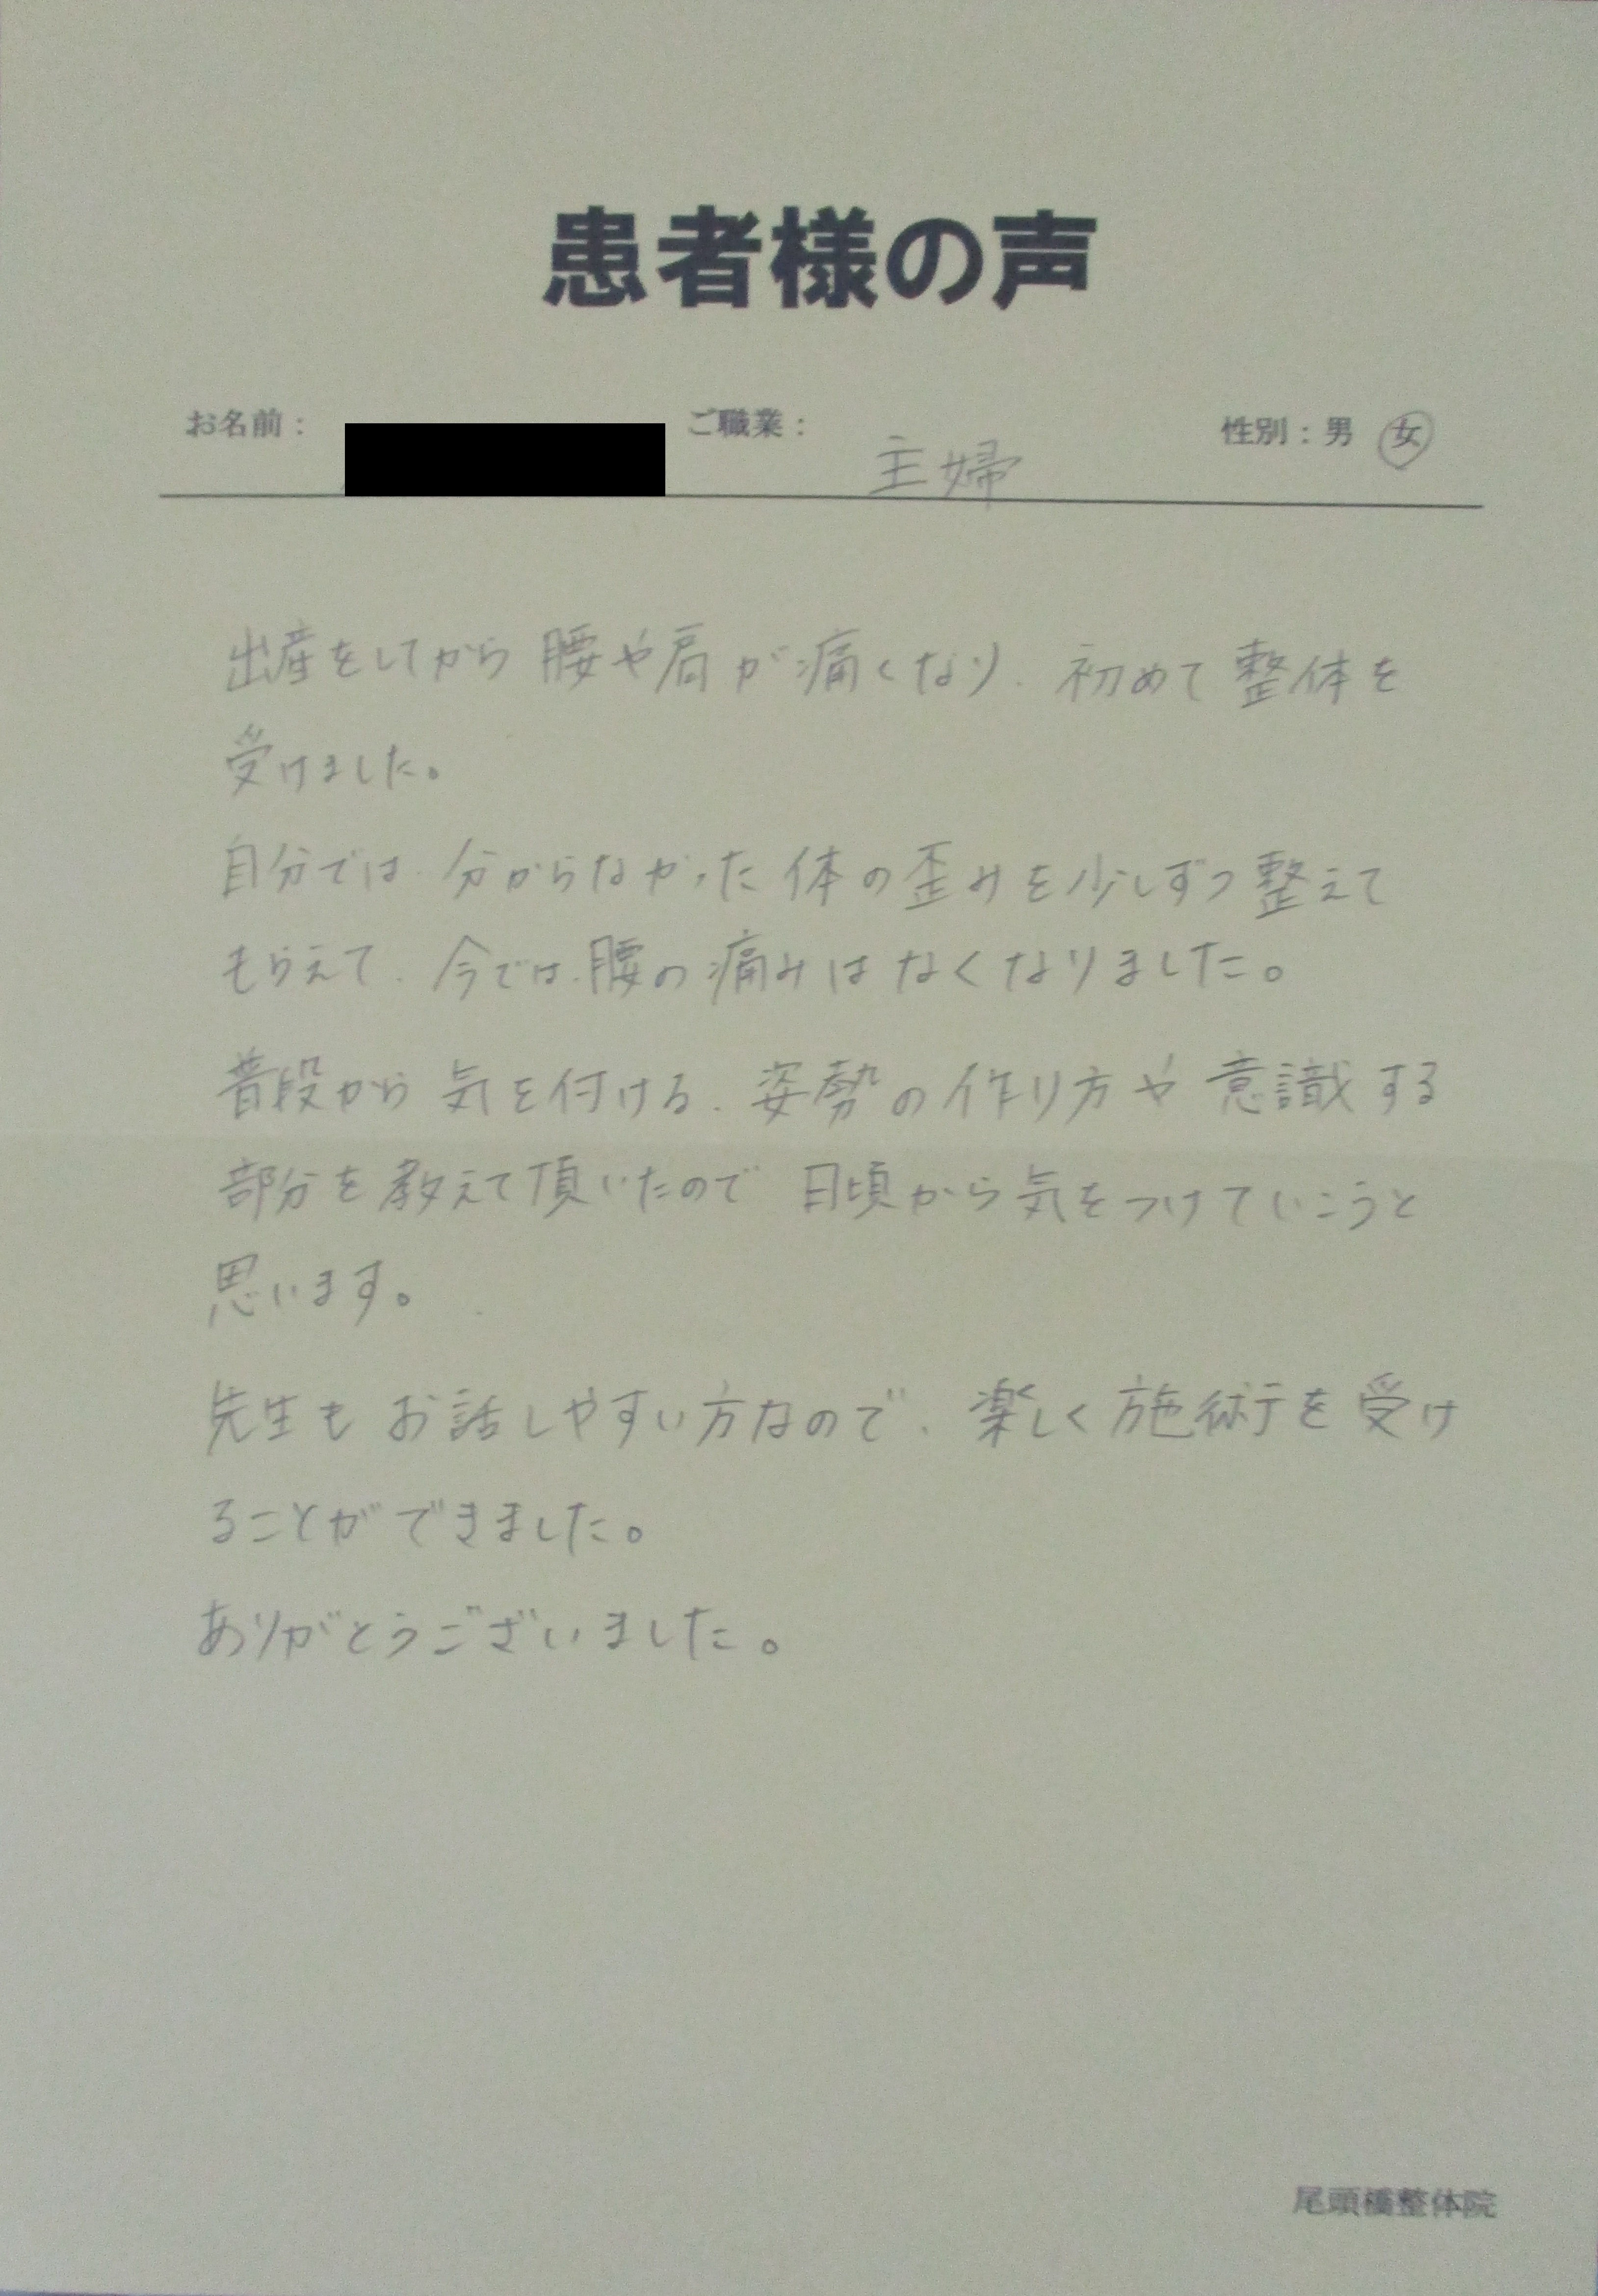 患者様の声
お名前： ご職業： 主婦 性別：男 女
出産をしてから腰や肩が痛くなり、初めて整体を
受けました。
自分では、分からなかった体の歪みを少しずつ整えて
もらえて、今では、腰の痛みはなくなりました。
普段から気を付ける、姿勢の作り方や意識する
部分を教えて頂いたので日頃から気をつけていこうと
思います。
先生もお話しやすい方なので、楽しく施術を受け
ることができました。
ありがとうございました。
尾頭橋整体院